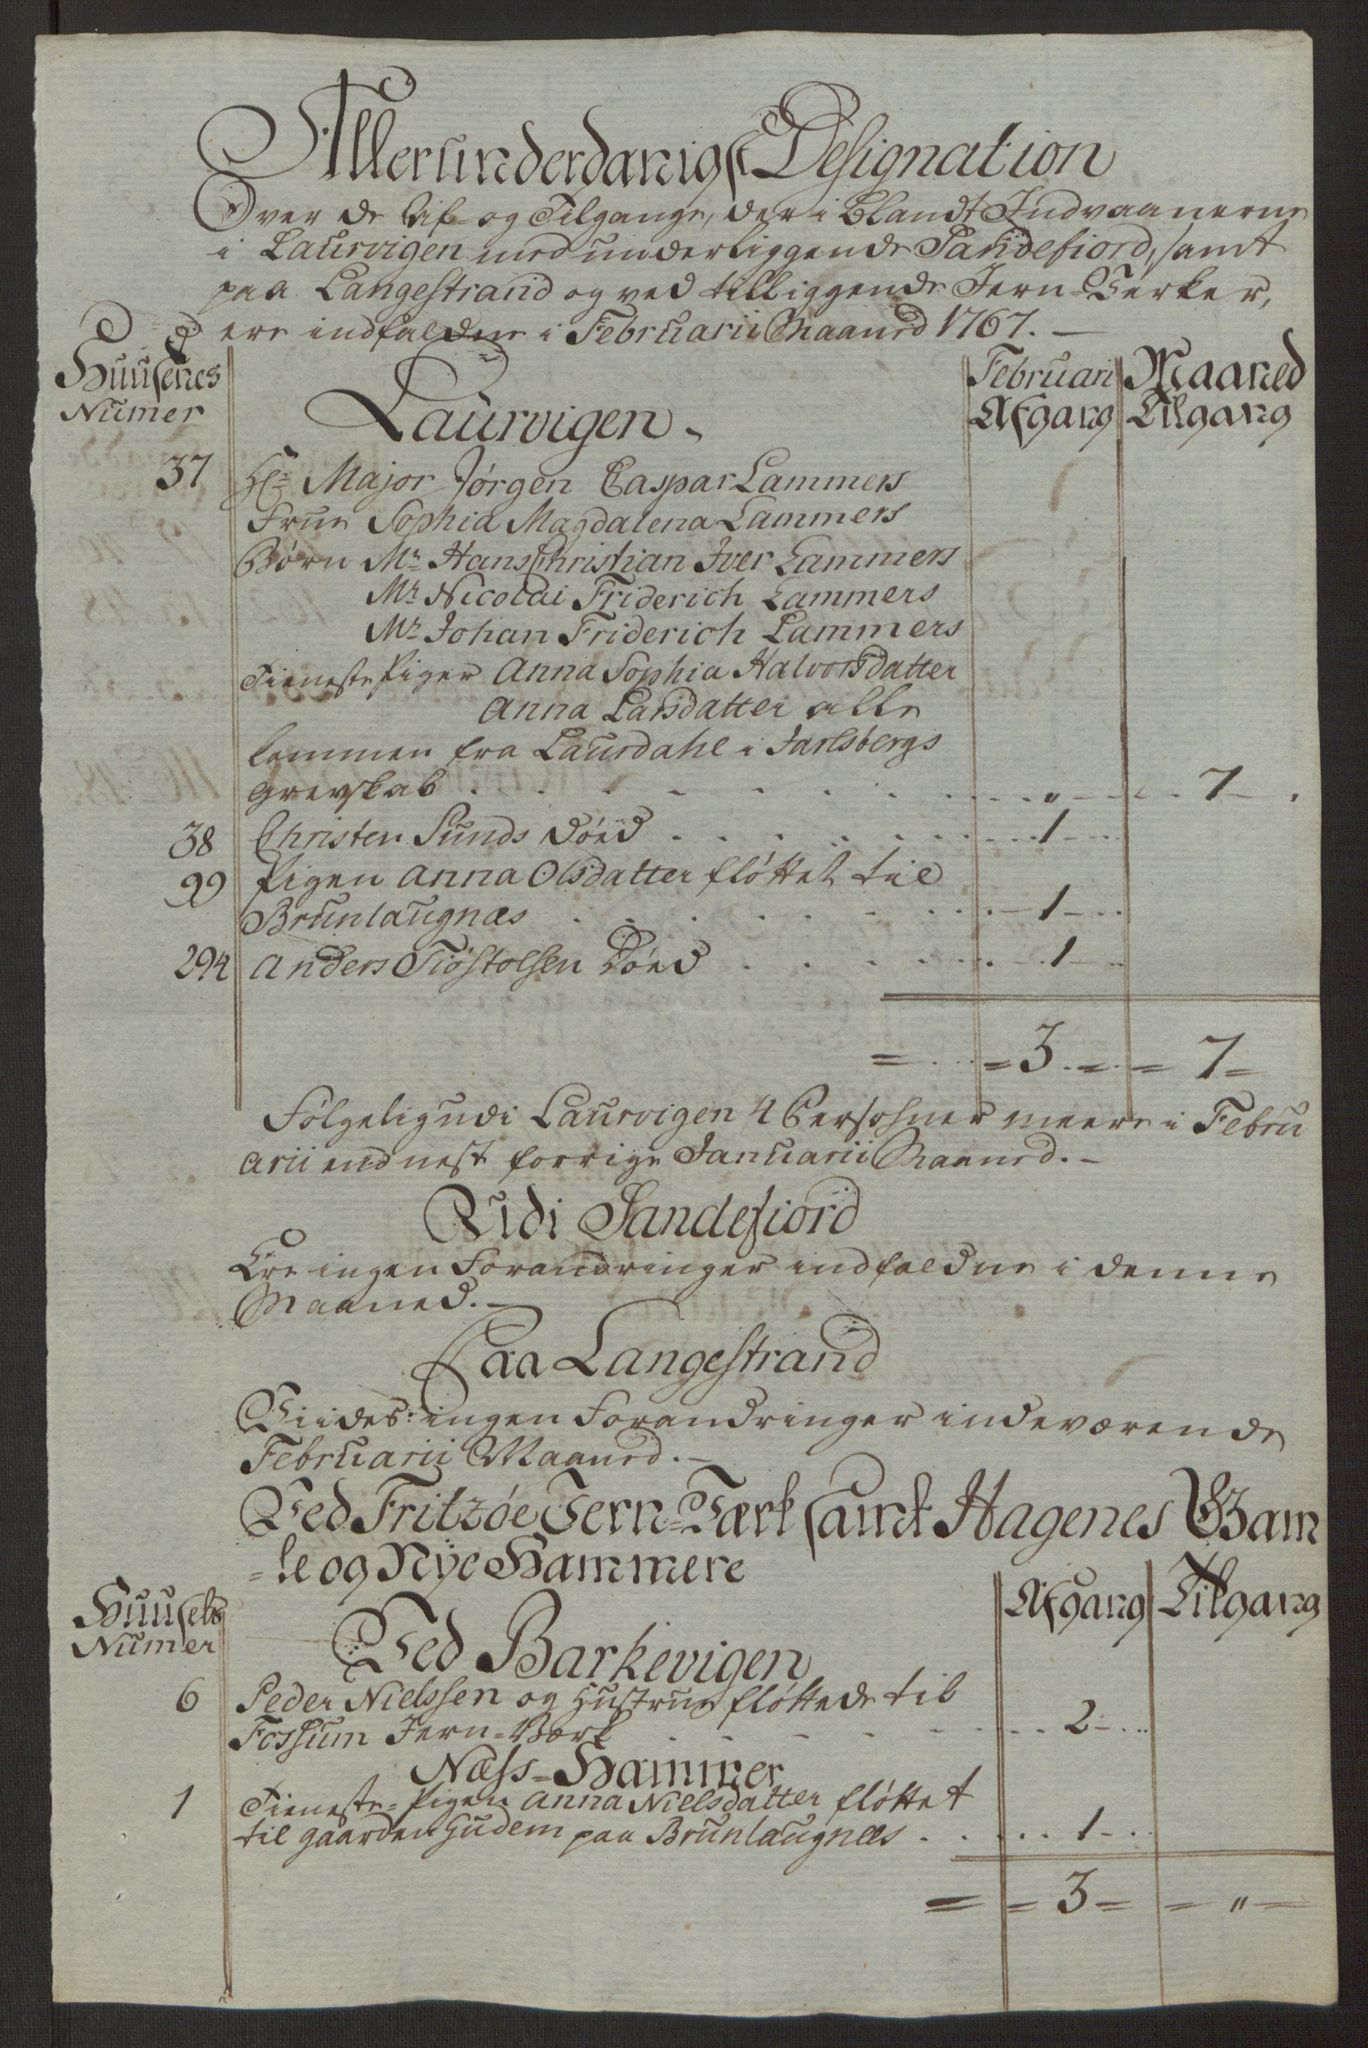 Allerunderdanigst Designation
Over de Af- og Tilgange, der i blandt Indvaanerne
i Laurvigen med underliggende Sandefiord, samt
paa Langestrand og ved tilliggende Jern-Verker,
ere indfaldne i Februarii Maaned 1767.
Huusenes Numer Februarii Maaned
Laurvigen. Afgang Tilgang
37 Hr. Major Jørgen Caspar Lammers
Frue Sophia Magdalena Lammers
Børn Mr. Hans Christian Iver Lammers
Mr. Nicolai Friderich Lammers
Mr. Johan Friderich Lammers
Tieneste Piger Anna Sophia Halvorsdatter
Anna Larsdatter alle
kommen fra Laurdahl i Jarlsbergs
Grevskab . . . . . . . . „ . . 7 .
38 Christen Sunds død . . . . . . 1 . .
99 Pigen Anna Olsdatter fløttet til
Brunlaugnæs . . . . . . . 1 . .
294 Anders Tiøstolsen død . . . . . 1 . .
= = 3 = = 7 =
Følgelig udi Laurvigen 4 Personer meere i Febru
arii end nest forrige Januarii Maaned.
Udi Sandefiord
Ere ingen Forandringer indfaldne i denne
Maaned.
Paa Langestrand
Viides: ingen Forandringer indeværende
Februarii Maaned.
Ved Fritzøe Jern-Værk samt Hagenes Gam
-le og Nye Hammere
Huusets Numer Afgang Tilgang
Ved Barkevigen
6 Peder Nielssen og Hustrue fløttede til
Fossum Jern-Værk . . . . . . 2 . .
Næss-Hammer
1 Tieneste-Pigen Anna Nielsdatter fløttet
til gaarden Hudem paa Brunlaugnæs . . . . 1 . .
= = 3 = = „ =